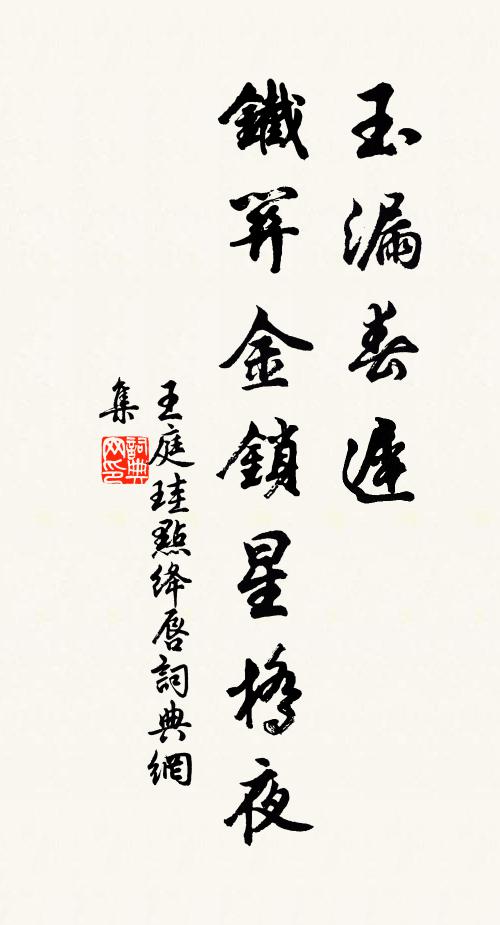 玉漏春遲
鐵關金鎖星橋夜
王庭珪點絳唇詞典網
集
詞典
网印